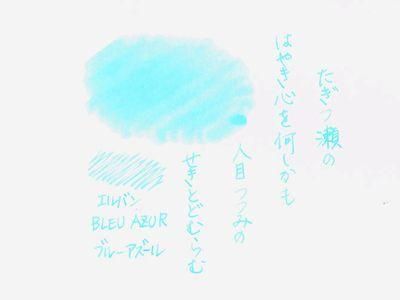 たぎつ瀬の
はやき心を何しかも
人目つつみの
せきとどむらむ
エルバン
BLEU AZUR
ブルーアズール